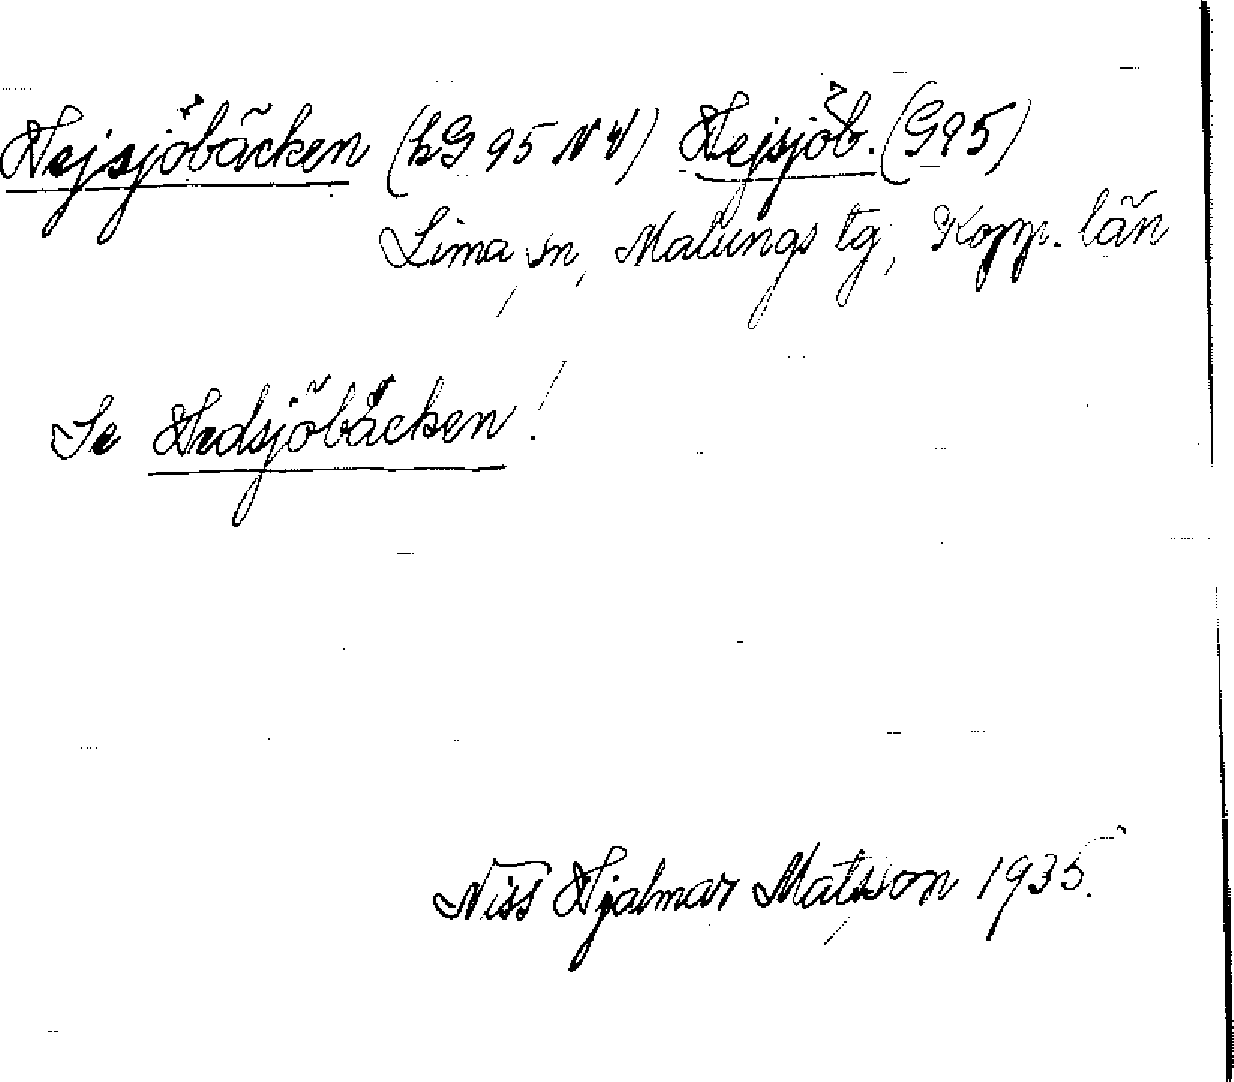 Hejsjöbäcken (hG 95 NV) Hejsjöb. (G95)
Lima sn, Malungs tg, Kopp. län
Se Hedsjöbäcken!
Niss Hjalmar Matsson 1935.